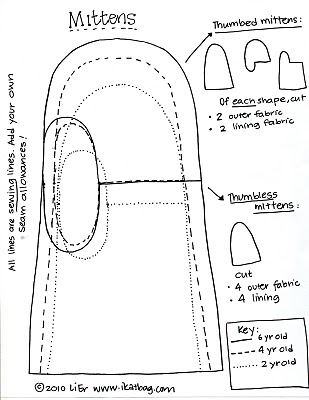 Mittens
Thumbed mittens:
Of each shape, cut
• 2 outer fabric
• 2 lining fabric
Thumbless
mittens:
cut
• 4 outer fabric
• 4 lining
Key:
6 yr old
4 yr old
2 yr old
All lines are sewing lines. Add your own
seam allowances!
©2010 LiEr www.ikatbag.com